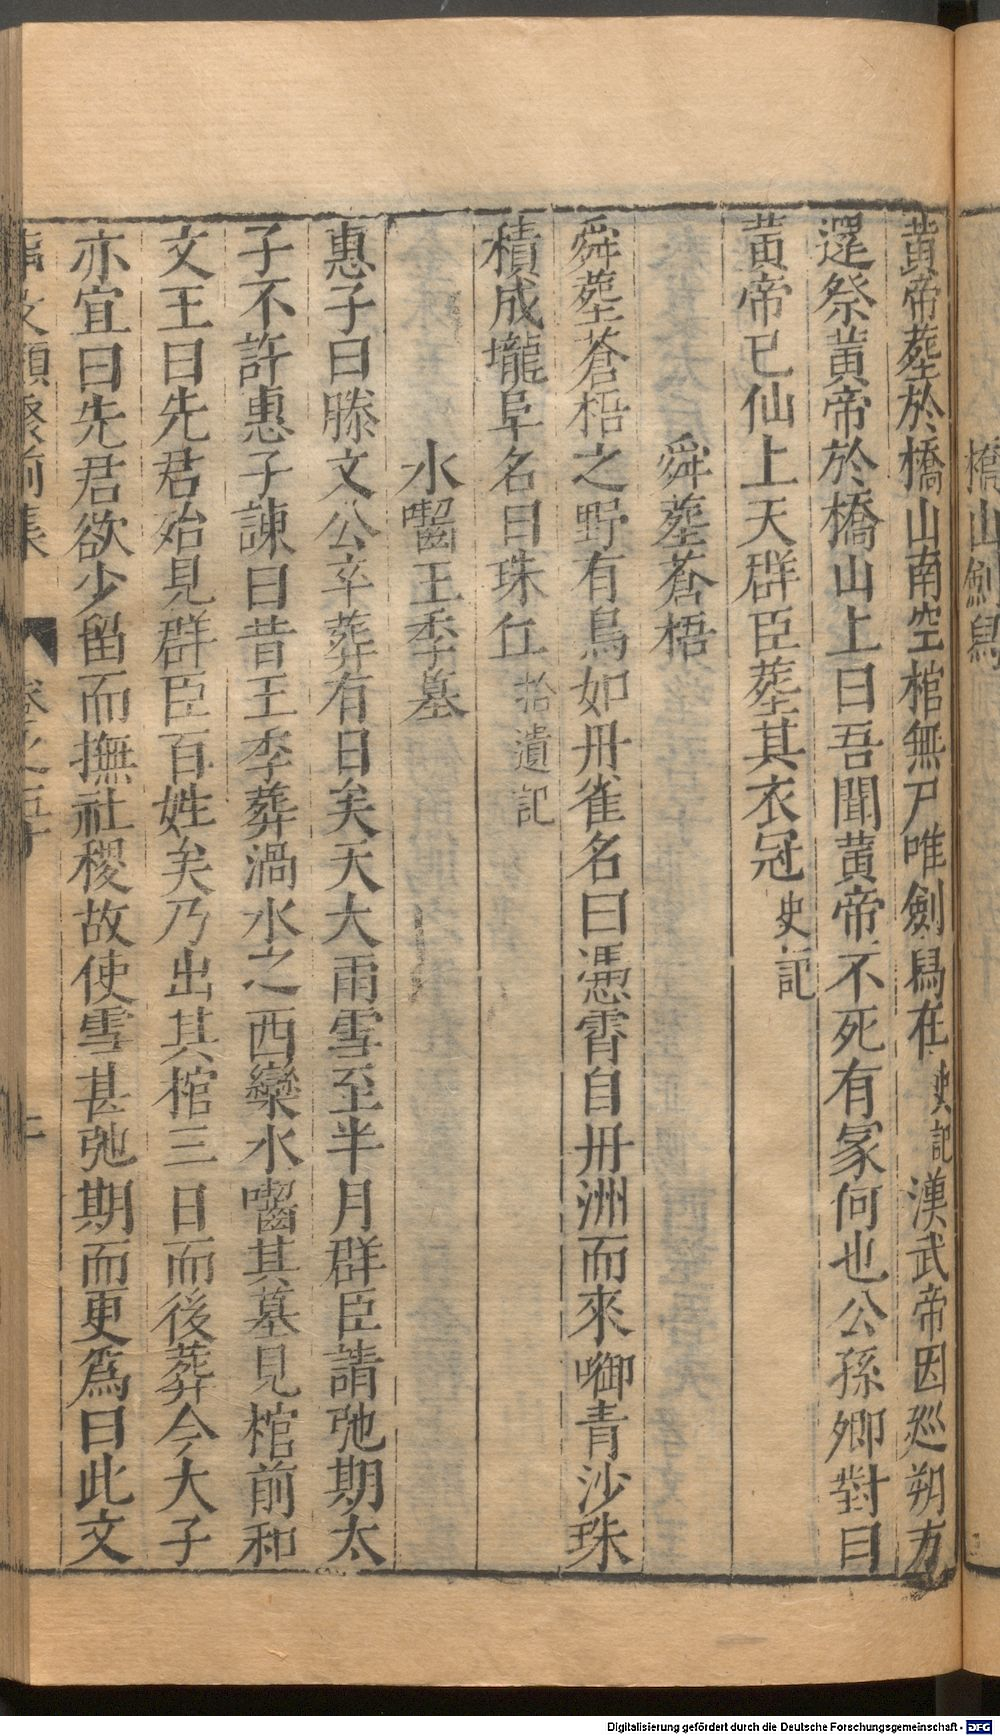 橋山劍舄
黃帝塟於橋山南空棺無尸唯劍舄在史記漢武帝因廵朔方
還祭黃帝於橋山上曰吾聞黃帝不死有冢何也公孫卿對曰
黃帝已仙上天群臣塟其衣冠史記
舜塟蒼梧
舜塟蒼梧之野有鳥如丹雀名曰慿霄自丹洲而來啣青沙珠
積成壠阜名曰珠丘拾遺記
水齧王季墓
惠子曰滕文公卒葬有日矣天大雨雪至半月群臣請弛期太
子不許惠子諫曰昔王季葬渦水之西欒水嚙其墓見棺前和
文王曰先君殆見群臣百姓矣乃出其棺三日而後葬今大子
亦宜曰先君欲少留而撫社稷故使雪甚弛期而更爲曰此文
事文類聚前集 卷之五十
Digitalisierung gefördert durch die Deutsche Forschungsgemeinschaft - DFG